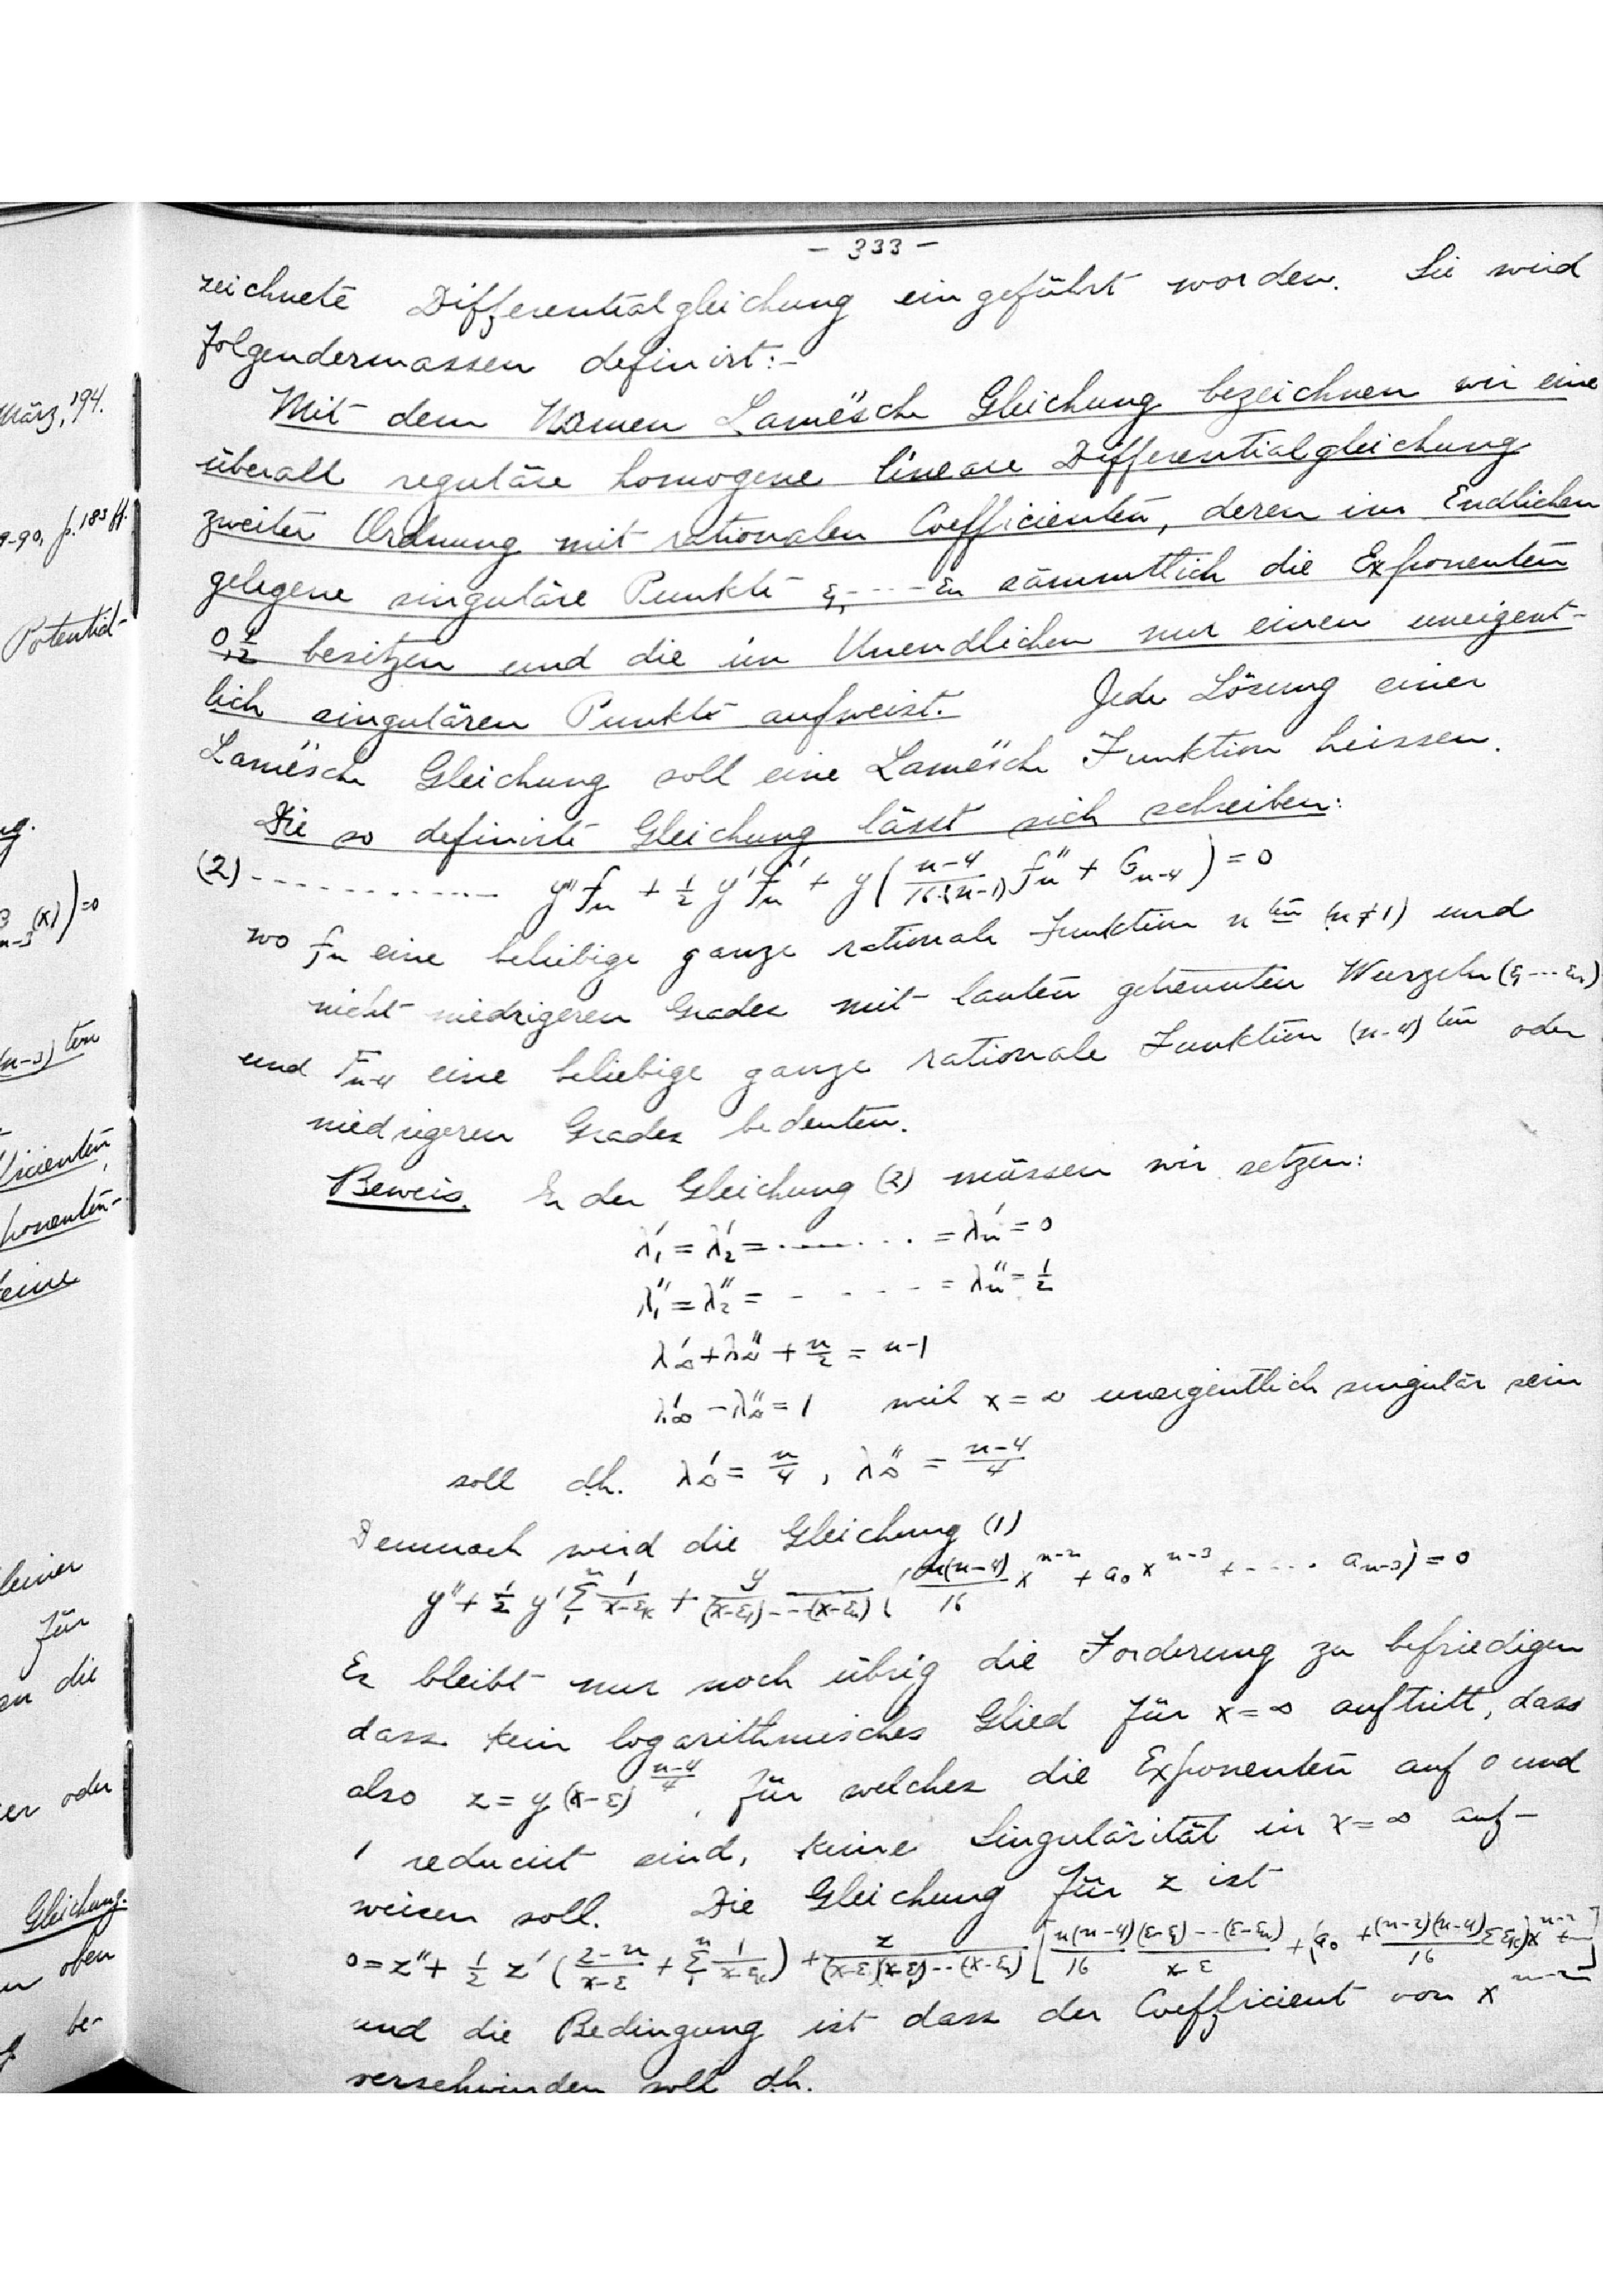 März, '94.
9-90, p. 183 ff.
Potential-
ng.
(x))=0
n-3
(n-3) ten
ficienten,
ponenten-
eine
kleiner
für
en die
er oder
Gleichung.
oben
be-
- 333 -
zeichnete Differentialgleichung eingeführt worden. Sie wird
folgendermassen definirt:-
Mit dem Namen Lamé'sch Gleichung bezeichnen wir eine
überall reguläre homogene lineare Differentialgleichung
zweiter Ordnung mit rationalen Coefficienten, deren im Endlichen
gelegene singuläre Punkte ε₁----εn sämmtlich die Exponenten
0, 1/2 besitzen und die im Unendlichen nur einen uneigent-
lich singulären Punkt aufweist. Jede Lösung einer
Lamé'sch Gleichung soll eine Lamé'sch Funktion heissen.
Die so definirte Gleichung lässt sich schreiben:
(2)------------- y''fn + 1/2 y'fn' + y((n-4)/(16·(n-1)) fn'' + Gn-4) = 0
wo fn eine beliebige ganze rationale Funktion n ten (n≠1) und
nicht niedrigeren Grades mit lauten getrennten Wurzeln (ε₁---εn)
und Fn-4 eine beliebige ganze rationale Funktion (n-4) ten oder
niedrigeren Grades bedeuten.
Beweis. In der Gleichung (2) müssen wir setzen:
λ₁' = λ₂' = ------ · · = λn' = 0
λ₁'' = λ₂'' = - - - - = λn'' = 1/2
λ∞' + λ∞'' + n/2 = n-1
λ∞' - λ∞'' = 1 weil x=∞ uneigentlich singulär sein
soll d.h. λ∞' = n/4, λ∞'' = (n-4)/4
Demnach wird die Gleichung (1)
y'' + 1/2 y' Σ₁ⁿ 1/(x-εk) + y/((x-ε₁)----(x-εn)) (n(n-4)/16 x^(n-2) + a₀x^(n-3) + - · · · an-3) = 0
Es bleibt nur noch übrig die Forderung zu befriedigen
dass kein logarithmisches Glied für x=∞ auftritt, dass
also z = y(x-ε)^((n-4)/4), für welches die Exponenten auf 0 und
1 reducirt sind, keine Singularität in x=∞ auf-
weisen soll. Die Gleichung für z ist
0 = z'' + 1/2 z' ((2-n)/(x-ε) + Σ₁ⁿ 1/(x-εk)) + z/((x-ε)(x-ε₁)--(x-εn)) [n(n-4)/16 (ε-ε₁)---(ε-εn)/(x-ε) + (a₀ + (n-2)(n-4)/16 Σεk)x^(n-2) + --]
und die Bedingung ist dass der Coefficient von x^(n-2)
verschwinden soll d.h.